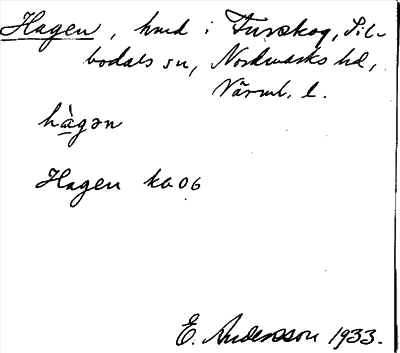 Hagen, hmd i Furskog, Sil-
bodals sn, Nordmarks hd,
Värml. l.
hàgən
Hagen kb 06
E. Andersson 1933.